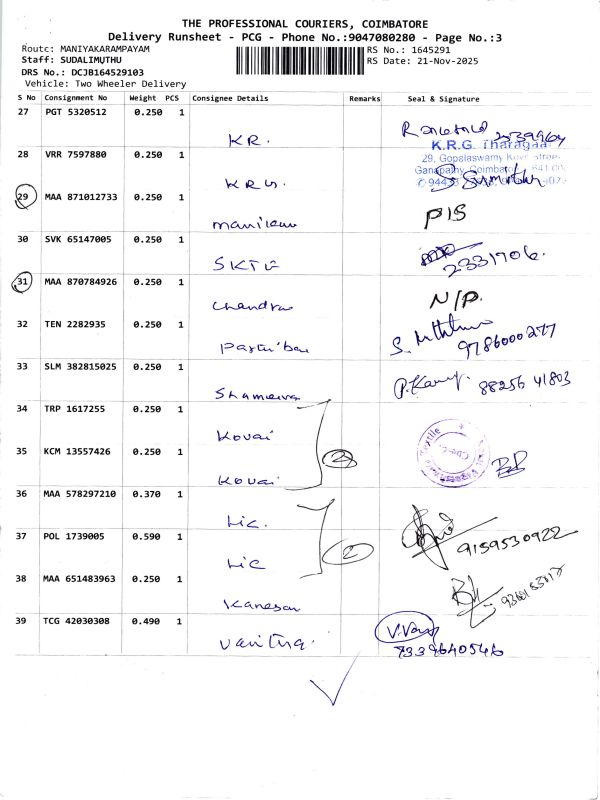 THE PROFESSIONAL COURIERS, COIMBATORE
Delivery Runsheet - PCG - Phone No.:9047080280 - Page No.:3
Route: MANIYAKARAMPAYAM
RS No.: 1645291
Staff: SUDALIMUTHU
RS Date: 21-Nov-2025
DRS No.: DCJB164529103
Vehicle: Two Wheeler Delivery
S No Consignment No Weight PCS Consignee Details Remarks Seal & Signature
27 PGT 5320512 0.250 1
KR.
K.R.G. Tharagaa
28 VRR 7597880 0.250 1
29, Gopalaswamy
KRG.
29 MAA 871012733 0.250 1
P1S
30 SVK 65147005 0.250 1
2331706.
31 MAA 870784926 0.250 1
N/P.
Chandra
32 TEN 2282935 0.250 1
9786000277
33 SLM 382815025 0.250 1
88256 41803
34 TRP 1617255 0.250 1
Kovai
35 KCM 13557426 0.250 1
2
Kovai
36 MAA 578297210 0.370 1
Lic.
37 POL 1739005 0.590 1
2
9159530922
Lic
38 MAA 651483963 0.250 1
Kanesan
39 TCG 42030308 0.490 1
Vanitha.
7339640546